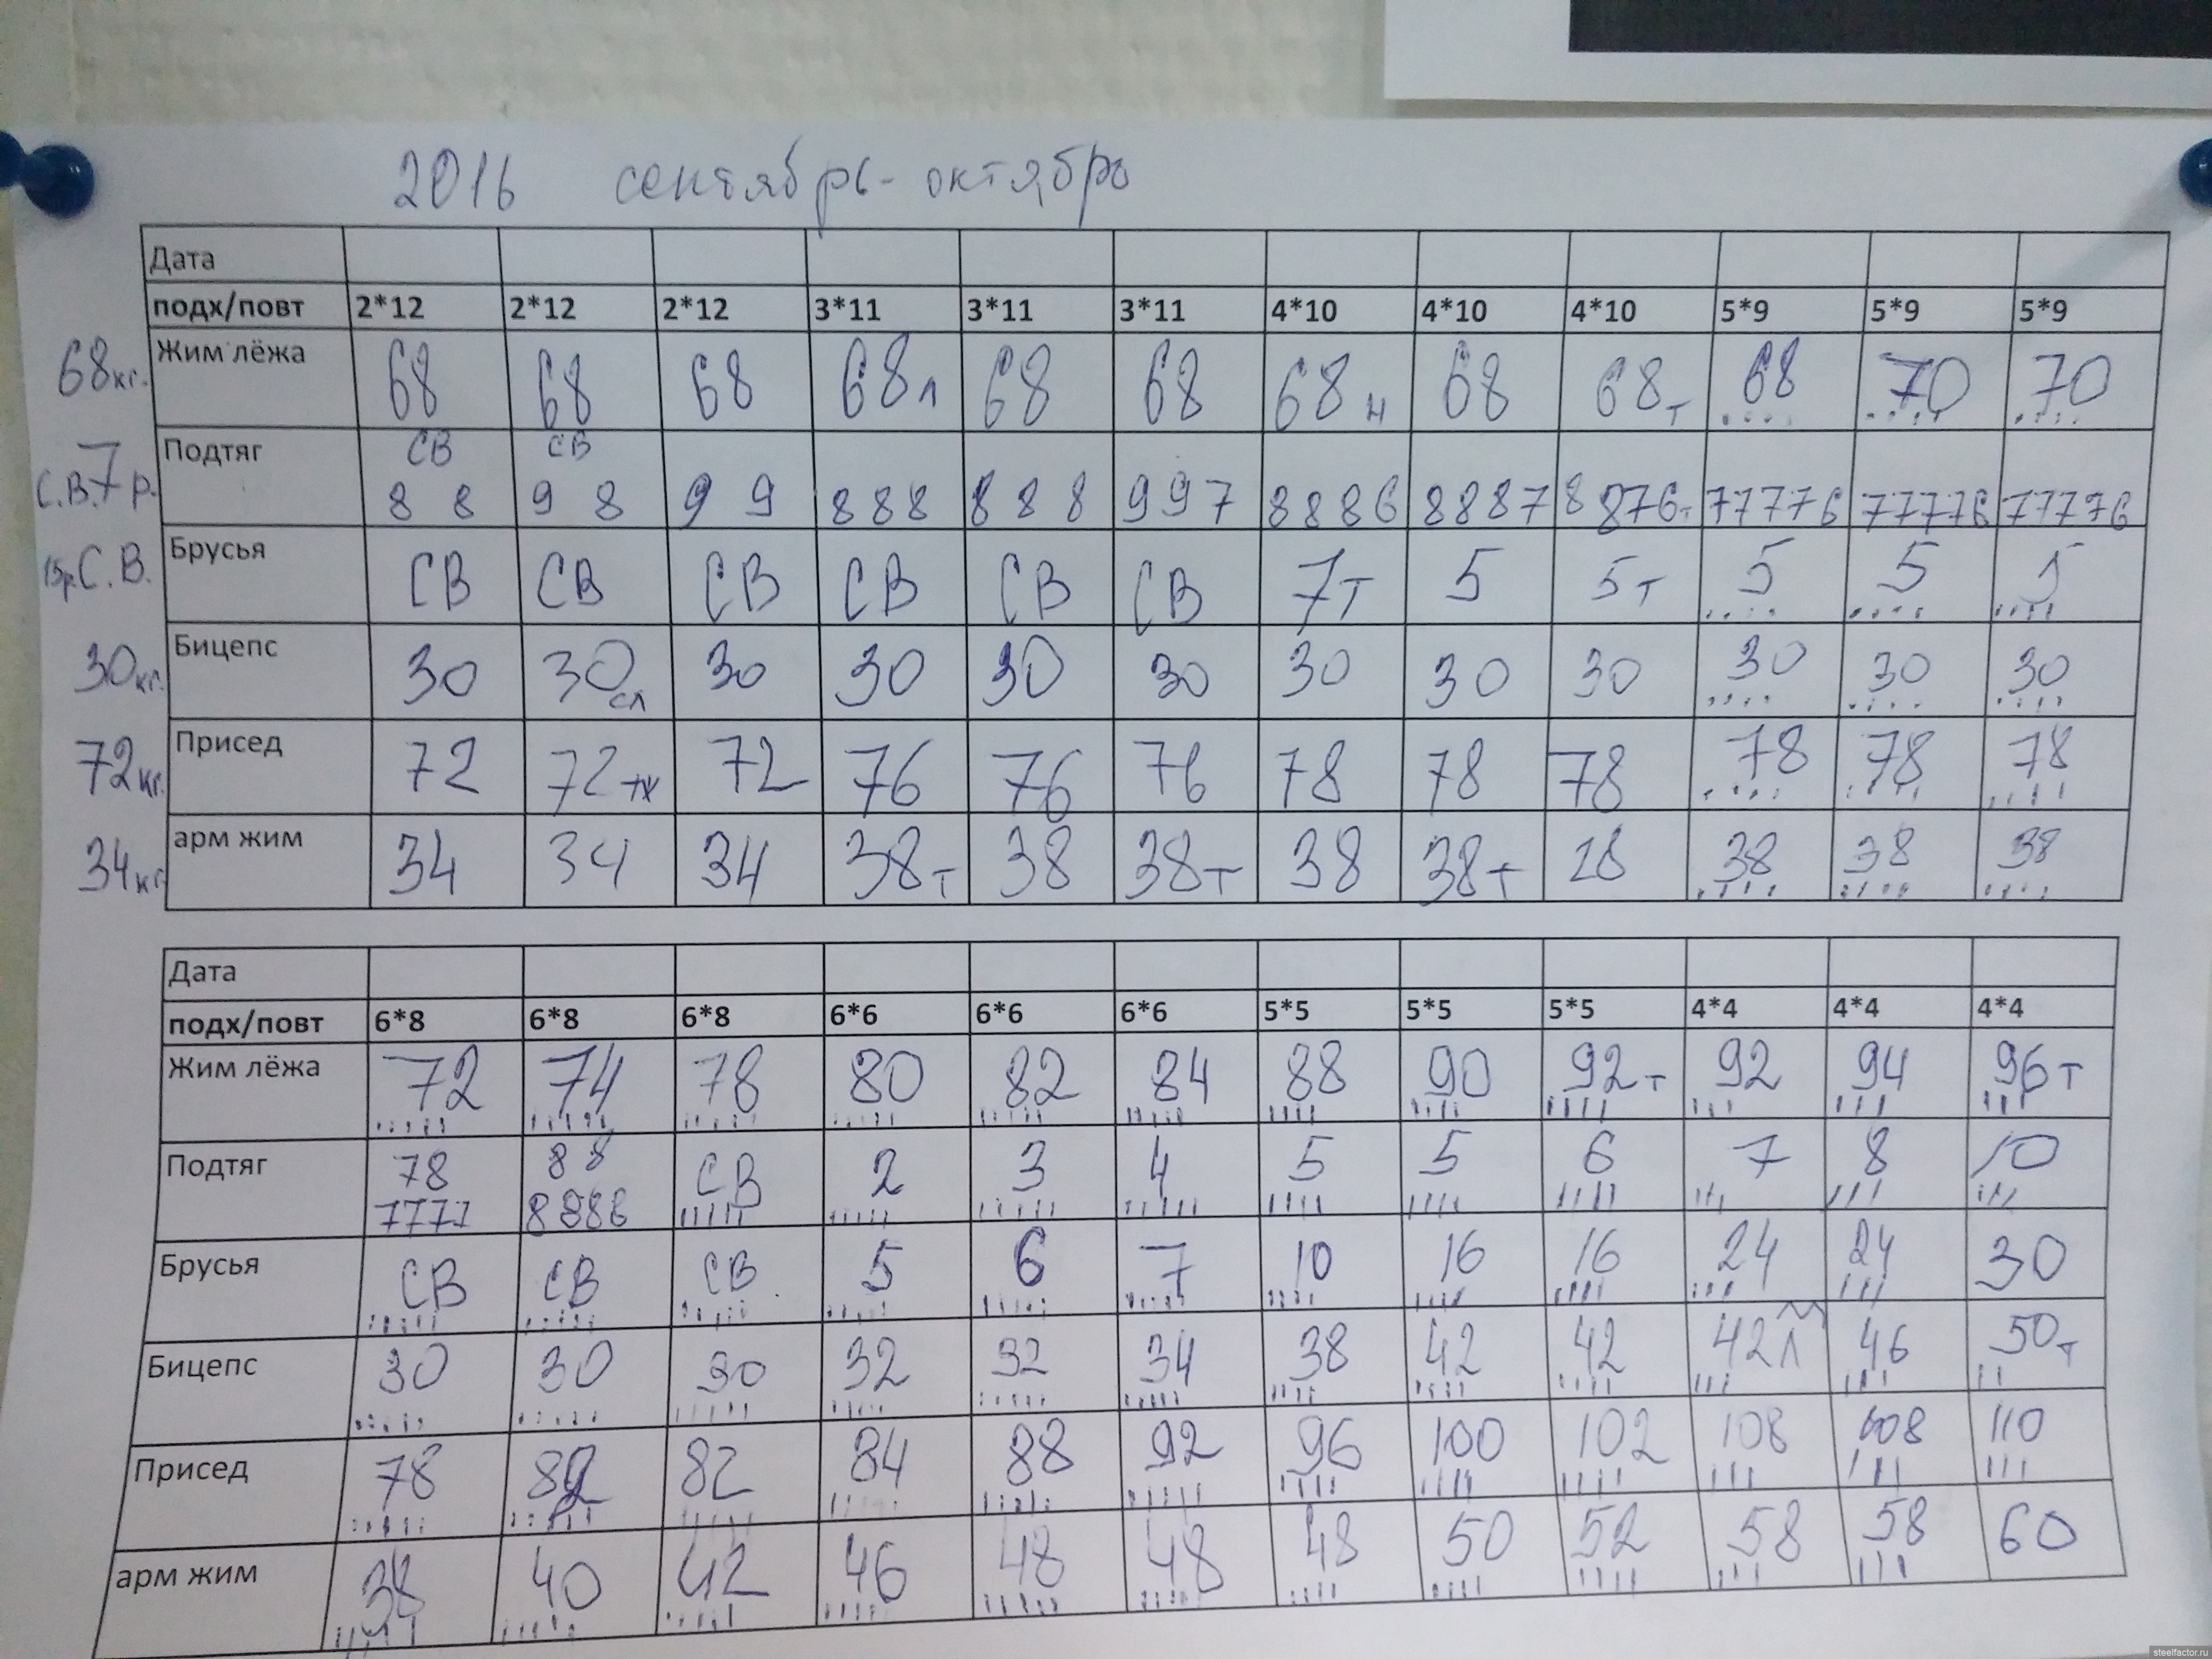 2016 сентябрь-октябрь
Дата
подх/повт 2*12 2*12 2*12 3*11 3*11 3*11 4*10 4*10 4*10 5*9 5*9 5*9
68кг. Жим лёжа 68 68 68 68л 68 68 68 н 68 68т 68 70 70
Подтяг СВ СВ
С.В. 7 р. 8 8 9 8 9 9 8 8 8 8 8 8 9 9 7 8 8 8 6 8 8 8 7 8 8 7 6т 7 7 7 7 6 7 7 7 7 6 7 7 7 7 6
15р. С.В. Брусья СВ СВ СВ СВ СВ СВ 7т 5 5т 5 5 5
30кг. Бицепс 30 30сл 30 30 30 30 30 30 30 30 30 30
72кг. Присед 72 72тж 72 76 76 76 78 78 78 78 78 78
34кг арм жим 34 34 34 38т 38 38т 38 38т 28 38 38 38
Дата
подх/повт 6*8 6*8 6*8 6*6 6*6 6*6 5*5 5*5 5*5 4*4 4*4 4*4
Жим лёжа 72 74 78 80 82 84 88 90 92т 92 94 96т
Подтяг 78 88 СВ 2 3 4 5 5 6 7 8 10
7777 8886
Брусья СВ СВ СВ 5 6 7 10 16 16 24 24 30
Бицепс 30 30 30 32 32 34 38 42 42 42л 46 50т
Присед 78 82 82 84 88 92 96 100 102 108 108 110
арм жим 38 40 42 46 48 48 48 50 52 58 58 60
steelfactor.ru